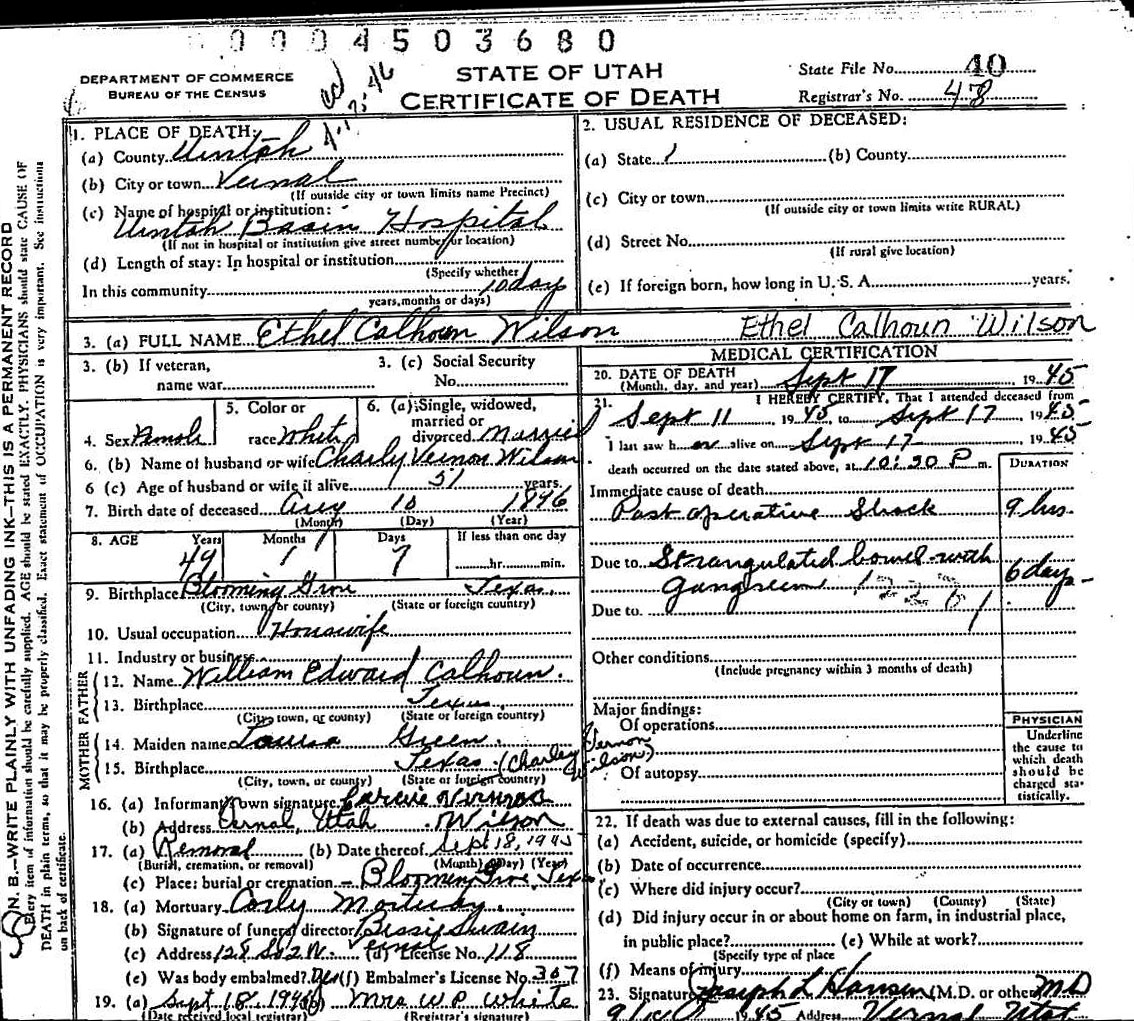 0004503680
DEPARTMENT OF COMMERCE
BUREAU OF THE CENSUS
STATE OF UTAH
CERTIFICATE OF DEATH
State File No. 40
Registrar's No. 48
N. B.—WRITE PLAINLY WITH UNFADING INK—THIS IS A PERMANENT RECORD
Every item of information should be carefully supplied. AGE should be stated EXACTLY. PHYSICIANS should state CAUSE OF
DEATH in plain terms, so that it may be properly classified. Exact statement of OCCUPATION is very important. See instructions
on back of certificate.
1. PLACE OF DEATH:
(a) County Uintah
(b) City or town Vernal
(If outside city or town limits name Precinct)
(c) Name of hospital or institution:
Uintah Basin Hospital
(If not in hospital or institution give street number or location)
(d) Length of stay: In hospital or institution
(Specify whether
In this community 10 days
years, months or days)
2. USUAL RESIDENCE OF DECEASED:
(a) State (b) County
(c) City or town
(If outside city or town limits write RURAL)
(d) Street No.
(If rural give location)
(e) If foreign born, how long in U. S. A. years.
3. (a) FULL NAME Ethel Calhoun Wilson Ethel Calhoun Wilson
3. (b) If veteran,
name war
3. (c) Social Security
No.
4. Sex Female
5. Color or
race White
6. (a) Single, widowed,
married or
divorced Married
6. (b) Name of husband or wife Charly Vernon Wilson
6 (c) Age of husband or wife if alive 51 years.
7. Birth date of deceased Aug 10 1896
(Month) (Day) (Year)
8. AGE Years Months Days If less than one day
49 1 7 hr. min.
9. Birthplace Blooming Grove Texas
(City, town or county) (State or foreign country)
10. Usual occupation Housewife
11. Industry or business
FATHER
12. Name William Edward Calhoun.
13. Birthplace Texas.
(City, town, or county) (State or foreign country)
MOTHER
14. Maiden name Louisa Green.
15. Birthplace Texas. (Charley Vernon Wilson)
(City, town, or county) (State or foreign country)
16. (a) Informant's own signature Wilson
(b) Address Vernal, Utah
17. (a) Removal (b) Date thereof Sept 18, 1945
(Burial, cremation, or removal) (Month) (Day) (Year)
(c) Place: burial or cremation Blooming Grove, Texas
18. (a) Mortuary Mortuary.
(b) Signature of funeral director Bessie Swain
(c) Address Vernal (d) License No. 118
(e) Was body embalmed? Yes (f) Embalmer's License No. 367
19. (a) Sept 18, 1945 (b) Mrs W P White
(Date received local registrar) (Registrar's signature)
MEDICAL CERTIFICATION
20. DATE OF DEATH
(Month, day, and year) Sept 17, 1945
21. I HEREBY CERTIFY, That I attended deceased from
Sept 11, 1945, to Sept 17, 1945
I last saw her alive on Sept 17, 1945
death occurred on the date stated above, at 10:30 P m.
DURATION
Immediate cause of death
Post operative Shock 9 hrs.
Due to Strangulated bowel with 6 days
gangreen 122 B1
Due to
Other conditions
(Include pregnancy within 3 months of death)
Major findings:
Of operations
Of autopsy
PHYSICIAN
Underline
the cause to
which death
should be
charged sta-
tistically.
22. If death was due to external causes, fill in the following:
(a) Accident, suicide, or homicide (specify)
(b) Date of occurrence
(c) Where did injury occur?
(City or town) (County) (State)
(d) Did injury occur in or about home on farm, in industrial place,
in public place? (e) While at work?
(Specify type of place
(f) Means of injury
23. Signature Joseph L Hansen (M.D. or other) MD
1945 Address Vernal Utah